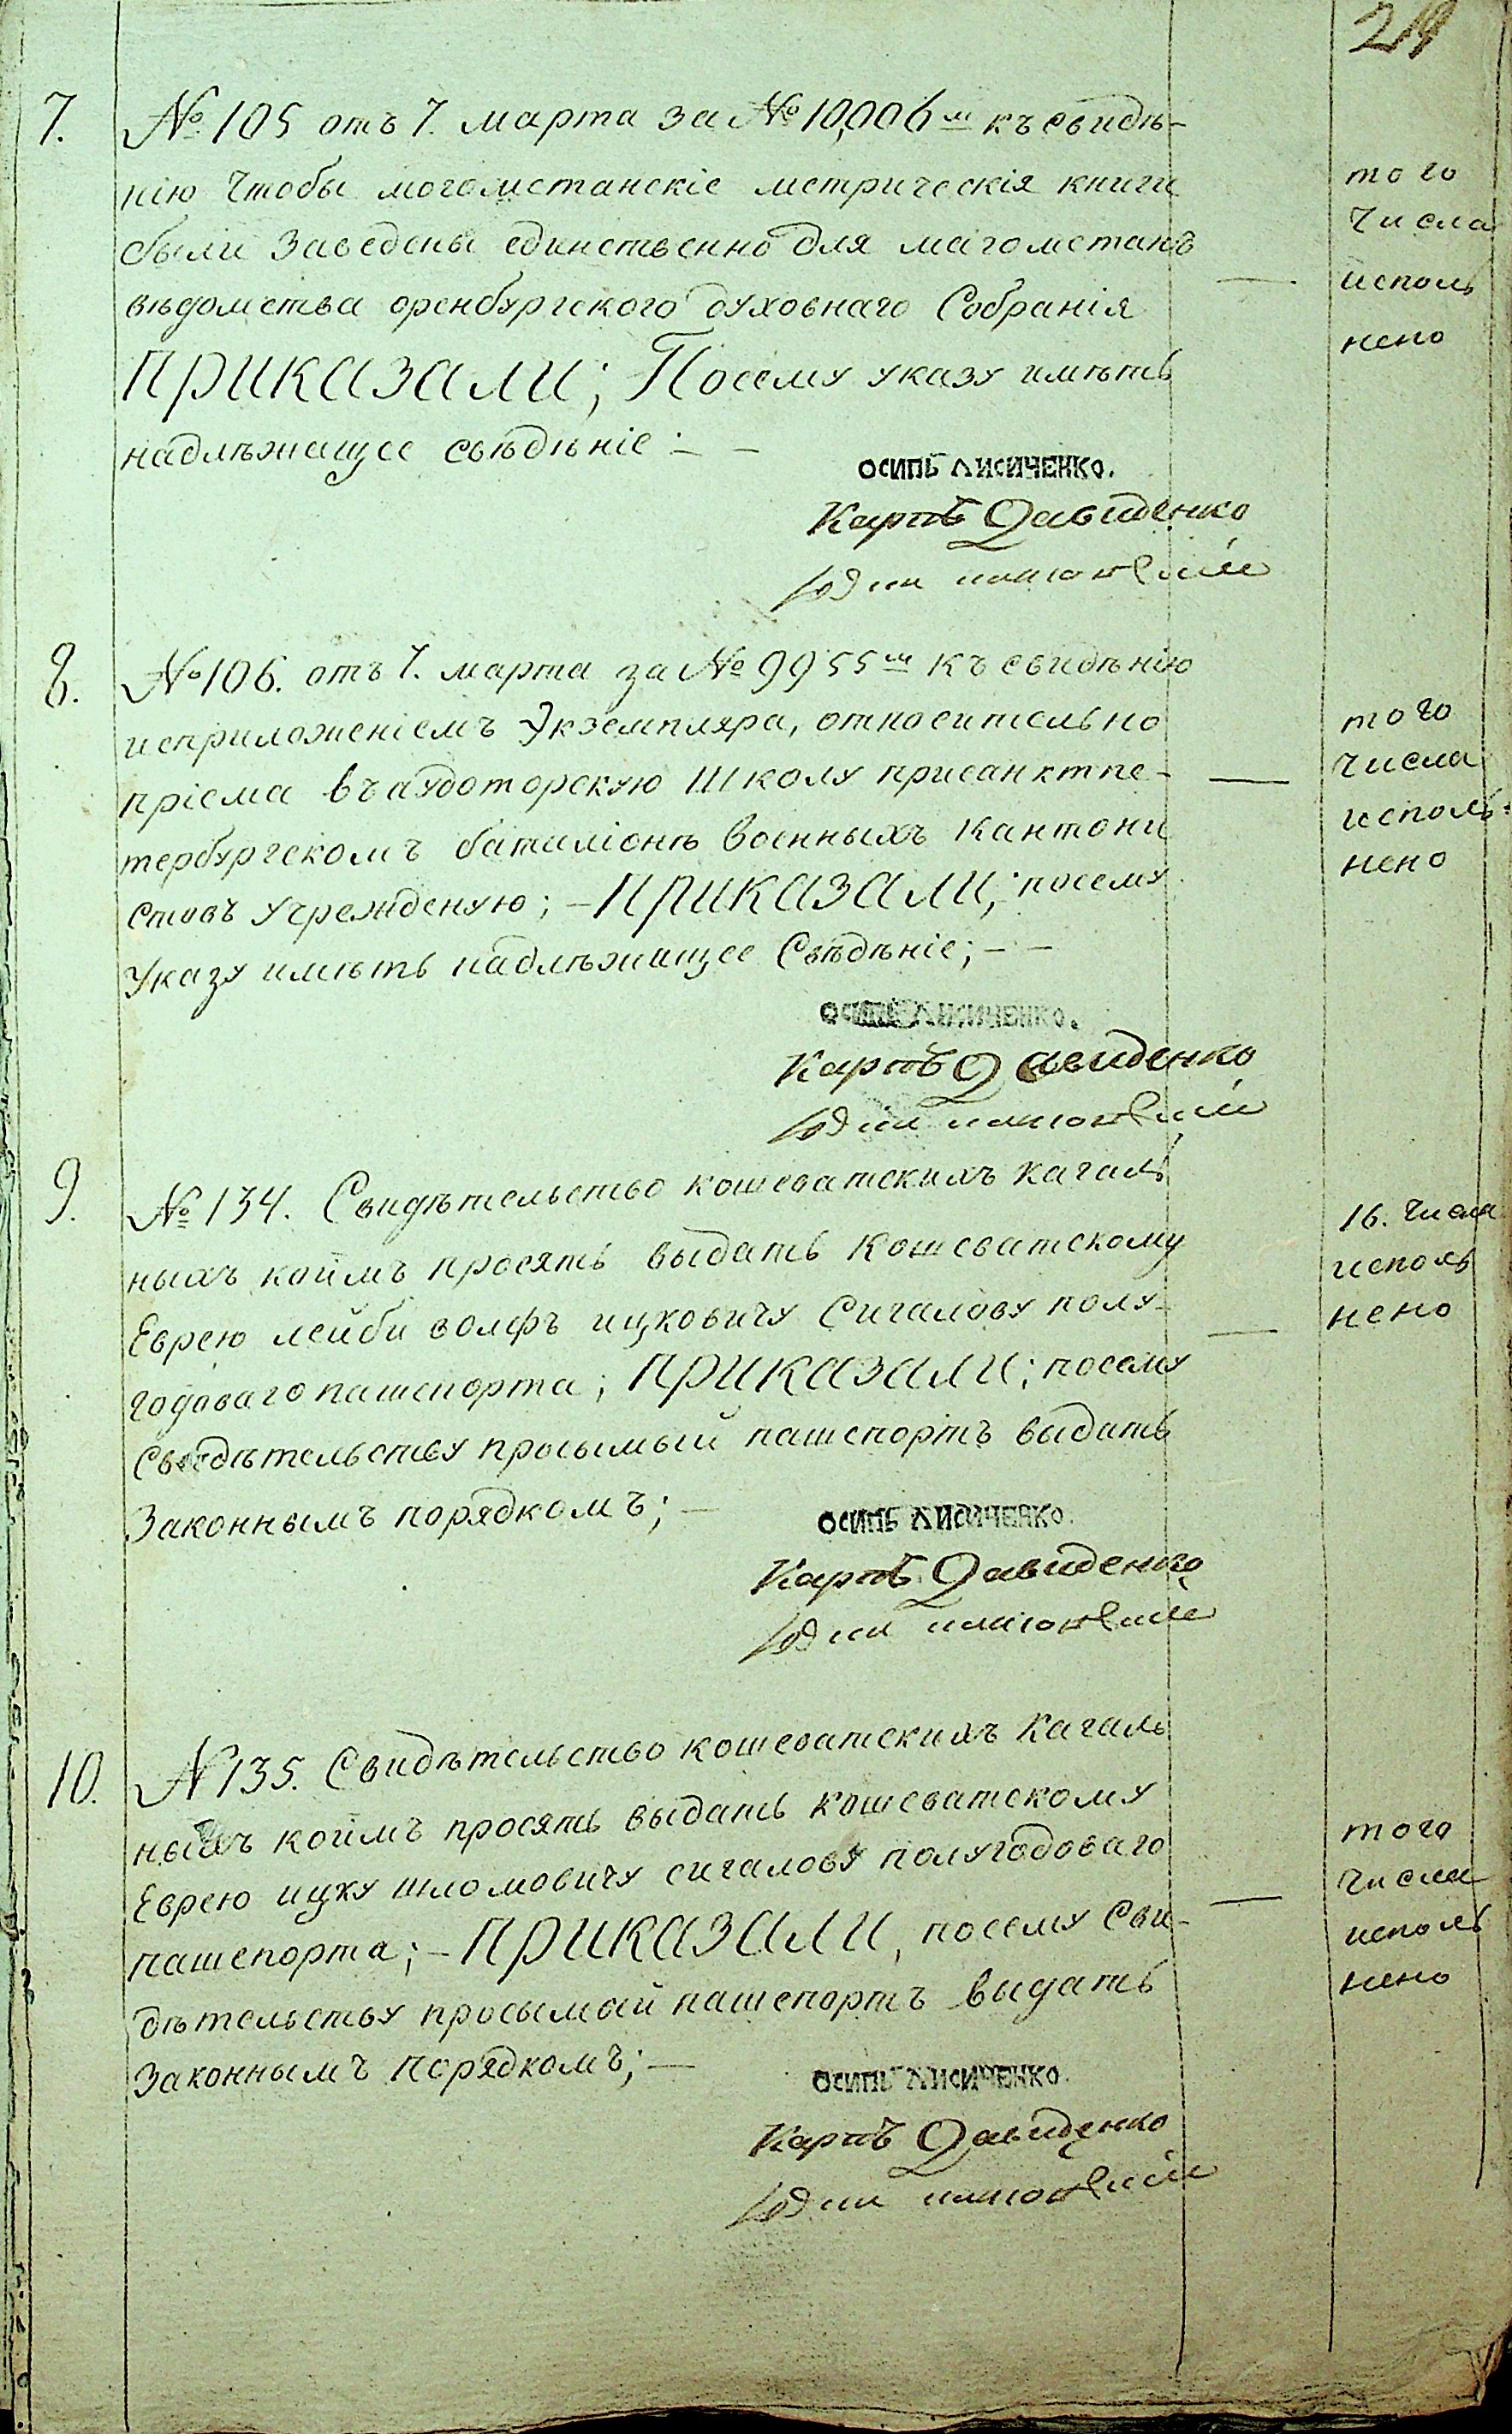 7. № 105 отъ 7. марта за № 10,006 м къ свидѣ-
нію Чтобы могометанскіе метрическія книги
были Заведены единственно для магометанъ
вѣдомства оренбургского духовнаго Собранія
ПРИКАЗАЛИ; Посему указу имѣть
надлѣжащее свѣдѣніе : – –
того
Числа
исполь
нено
ОСИПЪ ЛИСИЧЕНКО.
Карпъ Давиденко
8. № 106. отъ 7. марта за № 9955 м къ свидѣнію
исприложеніемъ Экземпляра, относительно
пріема въ аудоторскую Школу присанктпе-
тербургскомъ баталіонѣ Военныхъ Кантони
стовъ учрежденую; – ПРИКАЗАЛИ; посему
Указу имѣть надлѣжащее Свѣдѣніе; – –
того
Числа
исполь
нено
ОСИПЪ ЛИСИЧЕНКО.
Карпъ Давиденко
9. № 134. Свидѣтельство кошеватскихъ кагаль
ныхъ коимъ просять выдать кошеватскому
Еврею лейби волфъ ицковичу Сигалову полу-
годоваго пашепорта; ПРИКАЗАЛИ; посему
Свидѣтельству просымый пашепортъ выдать
Законнымъ порядкомъ; –
16. Числа
исполь
нено
ОСИПЪ ЛИСИЧЕНКО.
Карпъ Давиденко
10. № 135. Свидѣтельство кошеватскихъ Кагаль
ныхъ коимъ просять выдать кошеватскому
Еврею ицку шломовичу сигалову полугодоваго
пашепорта; – ПРИКАЗАЛИ, посему Сви-
дѣтельству просымай пашепортъ выдать
Законнымъ порядкомъ; –
того
Числа
исполь
нено
ОСИПЪ ЛИСИЧЕНКО.
Карпъ Давиденко